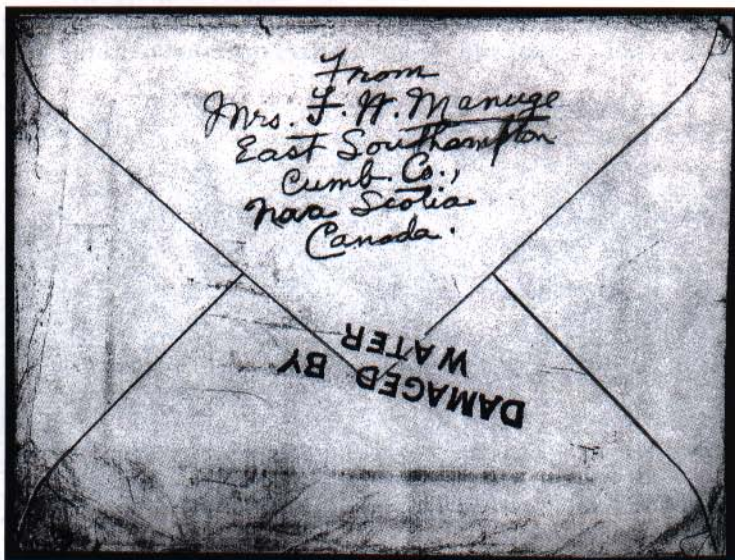 From
Mrs. F. W. Manuge
East Southampton
Cumb. Co.,
Nova Scotia
Canada.
DAMAGED BY
WATER